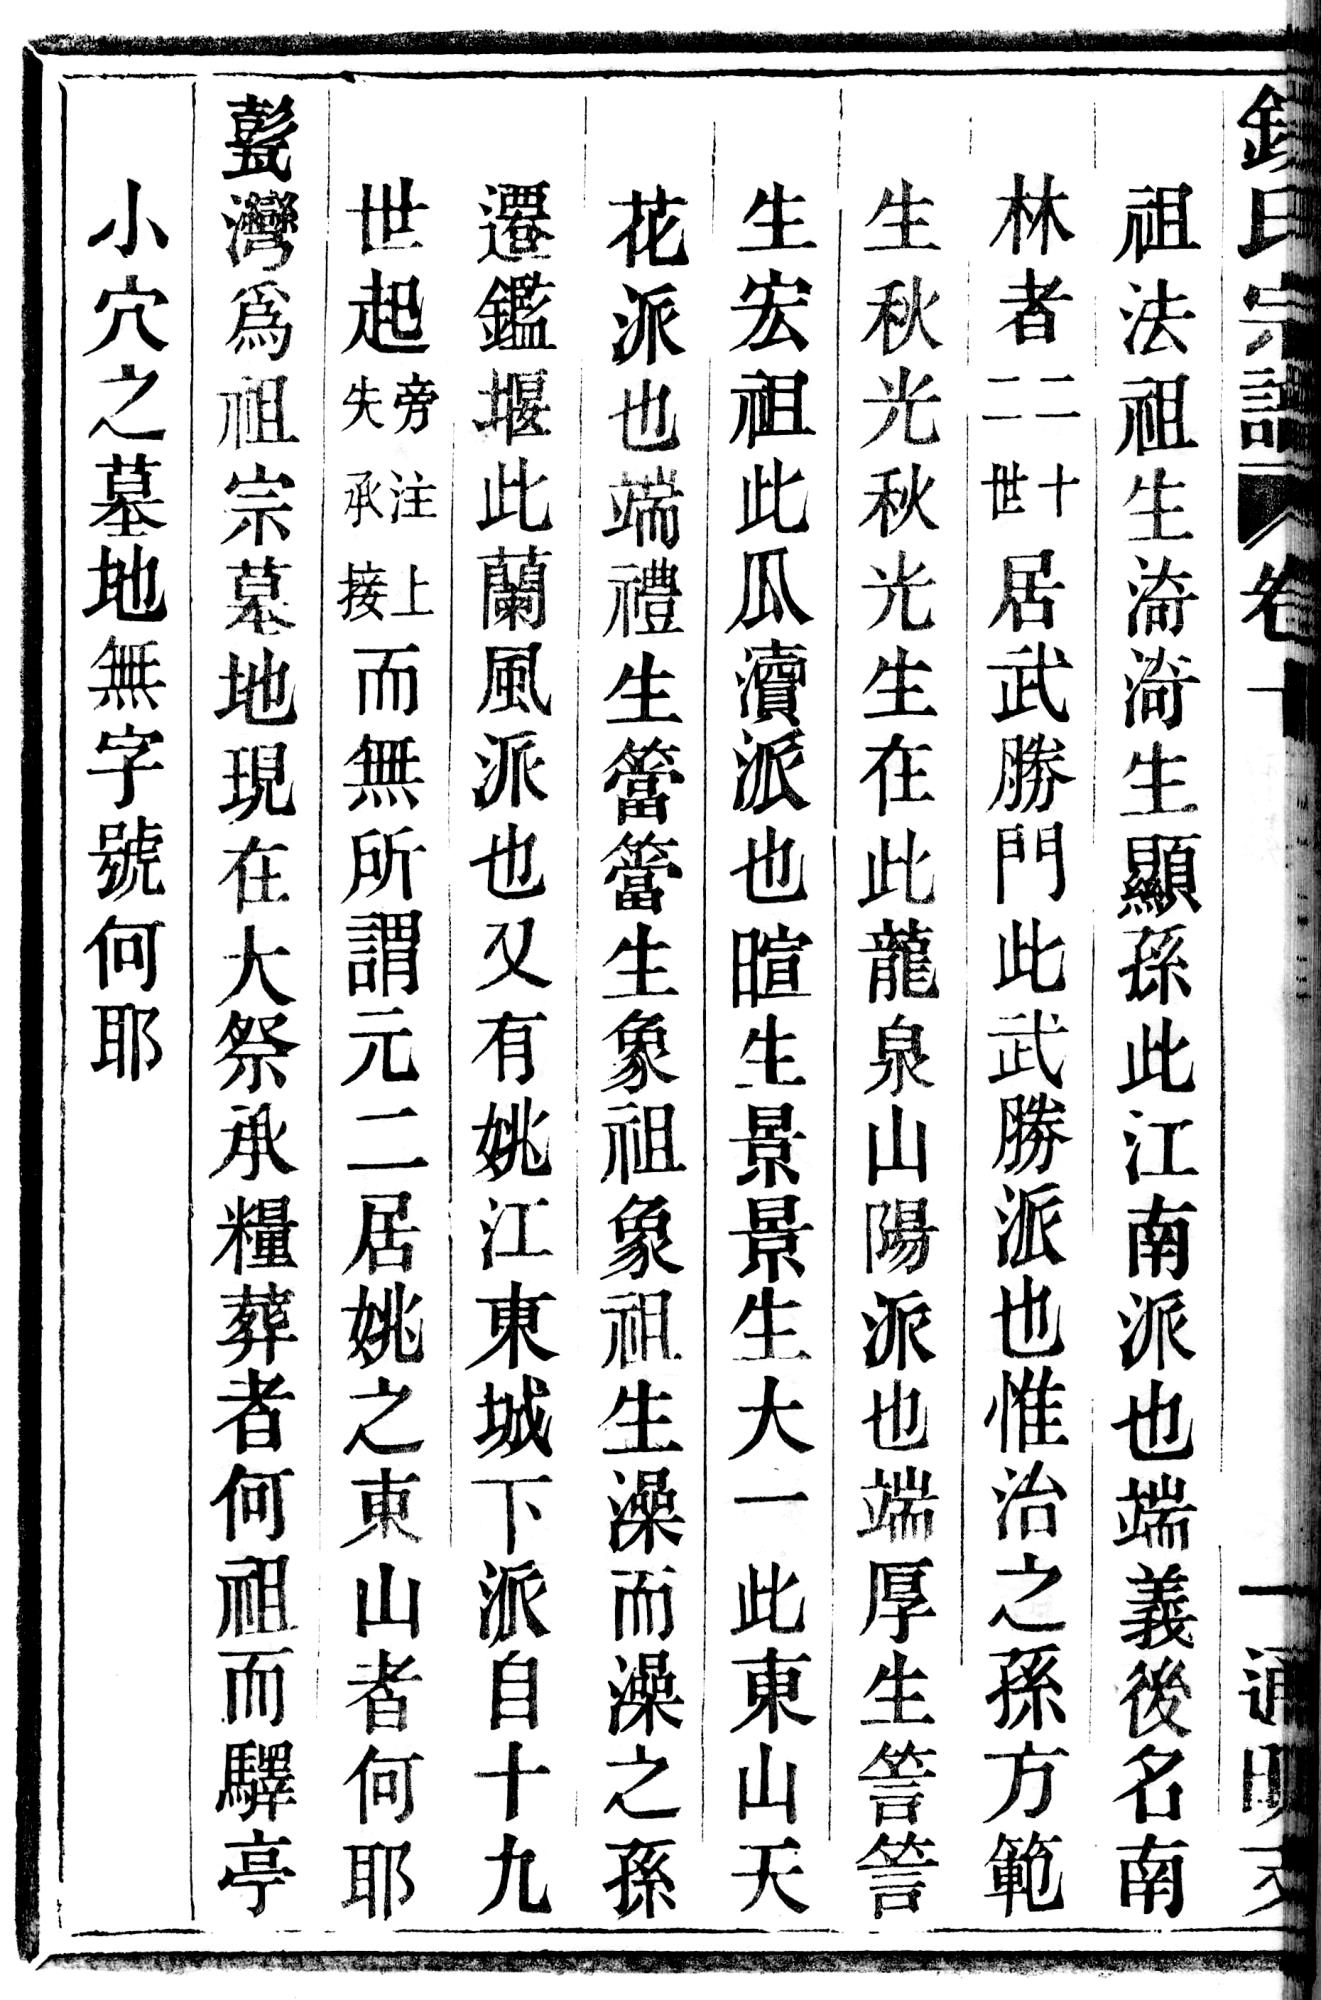 錢氏宗譜　卷十　一　通明支
祖法祖生渏渏生顯孫此江南派也端義後名南
林者二十二世居武勝門此武勝派也惟治之孫方範
生秋光秋光生在此龍泉山陽派也端厚生䇾䇾
生宏祖此瓜瀆派也暄生景景生大一此東山天
花派也端禮生簹簹生象祖象祖生澡而澡之孫
遷鑑堰此蘭風派也又有姚江東城下派自十九
世起旁注上失承接而無所謂元二居姚之東山者何耶
鼞灣爲祖宗墓地現在大祭承糧葬者何祖而驛亭
小穴之墓地無字號何耶